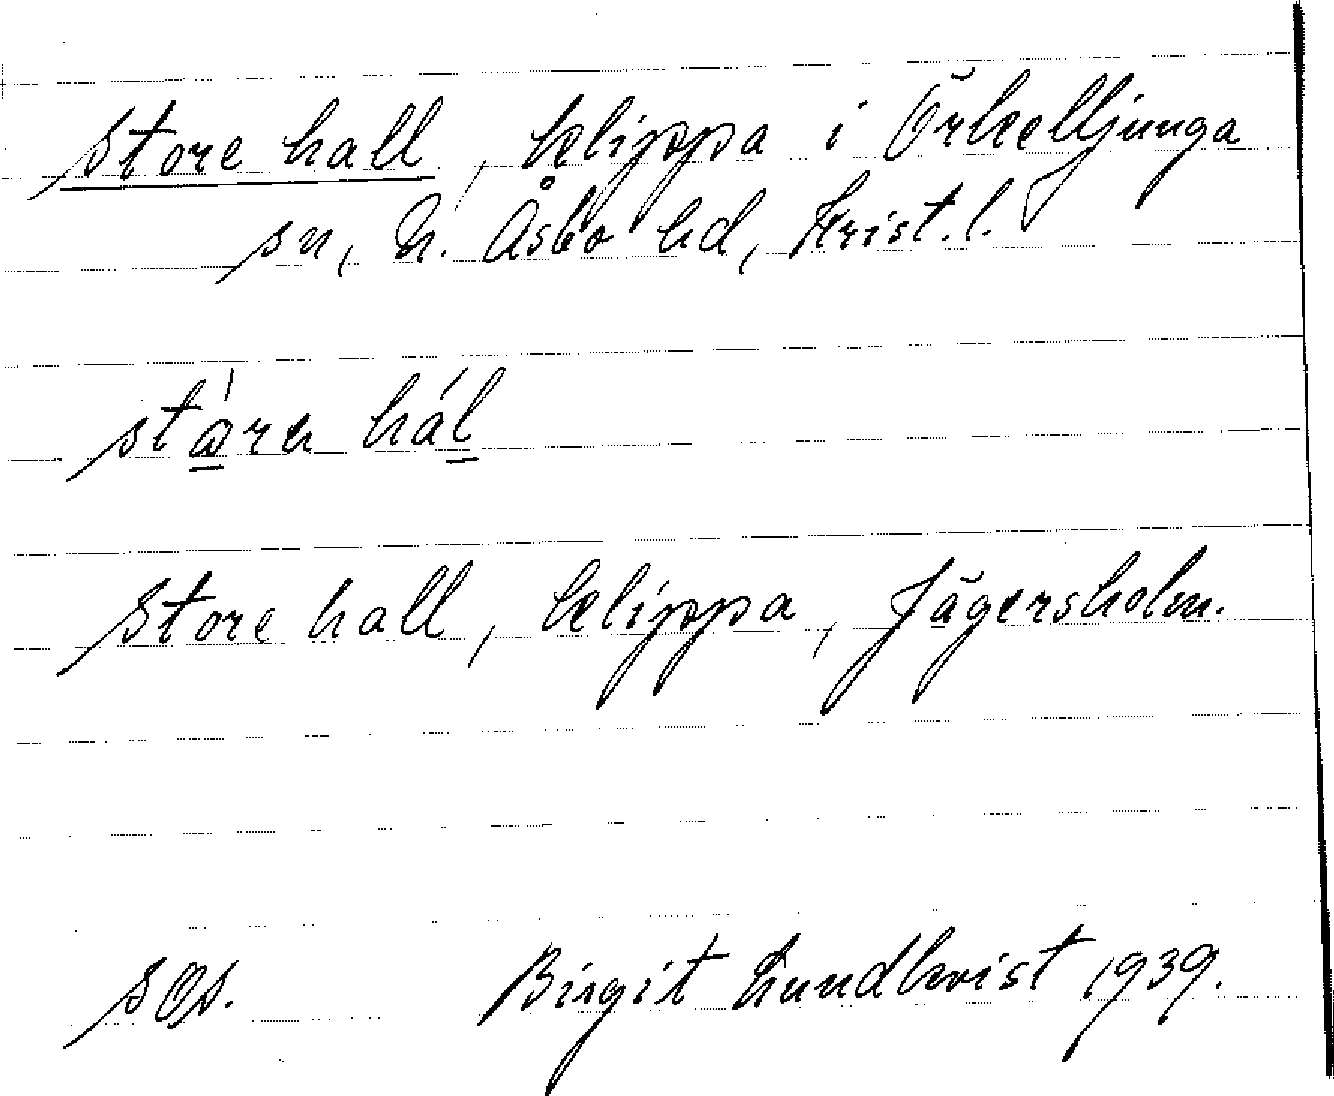 Store hall, klippa i Örkelljunga
sn, N. Åsbo hd, Krist. l.
stɷ́rɐ hál
Store hall, klippa, Jägersholm.
sqs.
Birgit Lundkvist 1939.